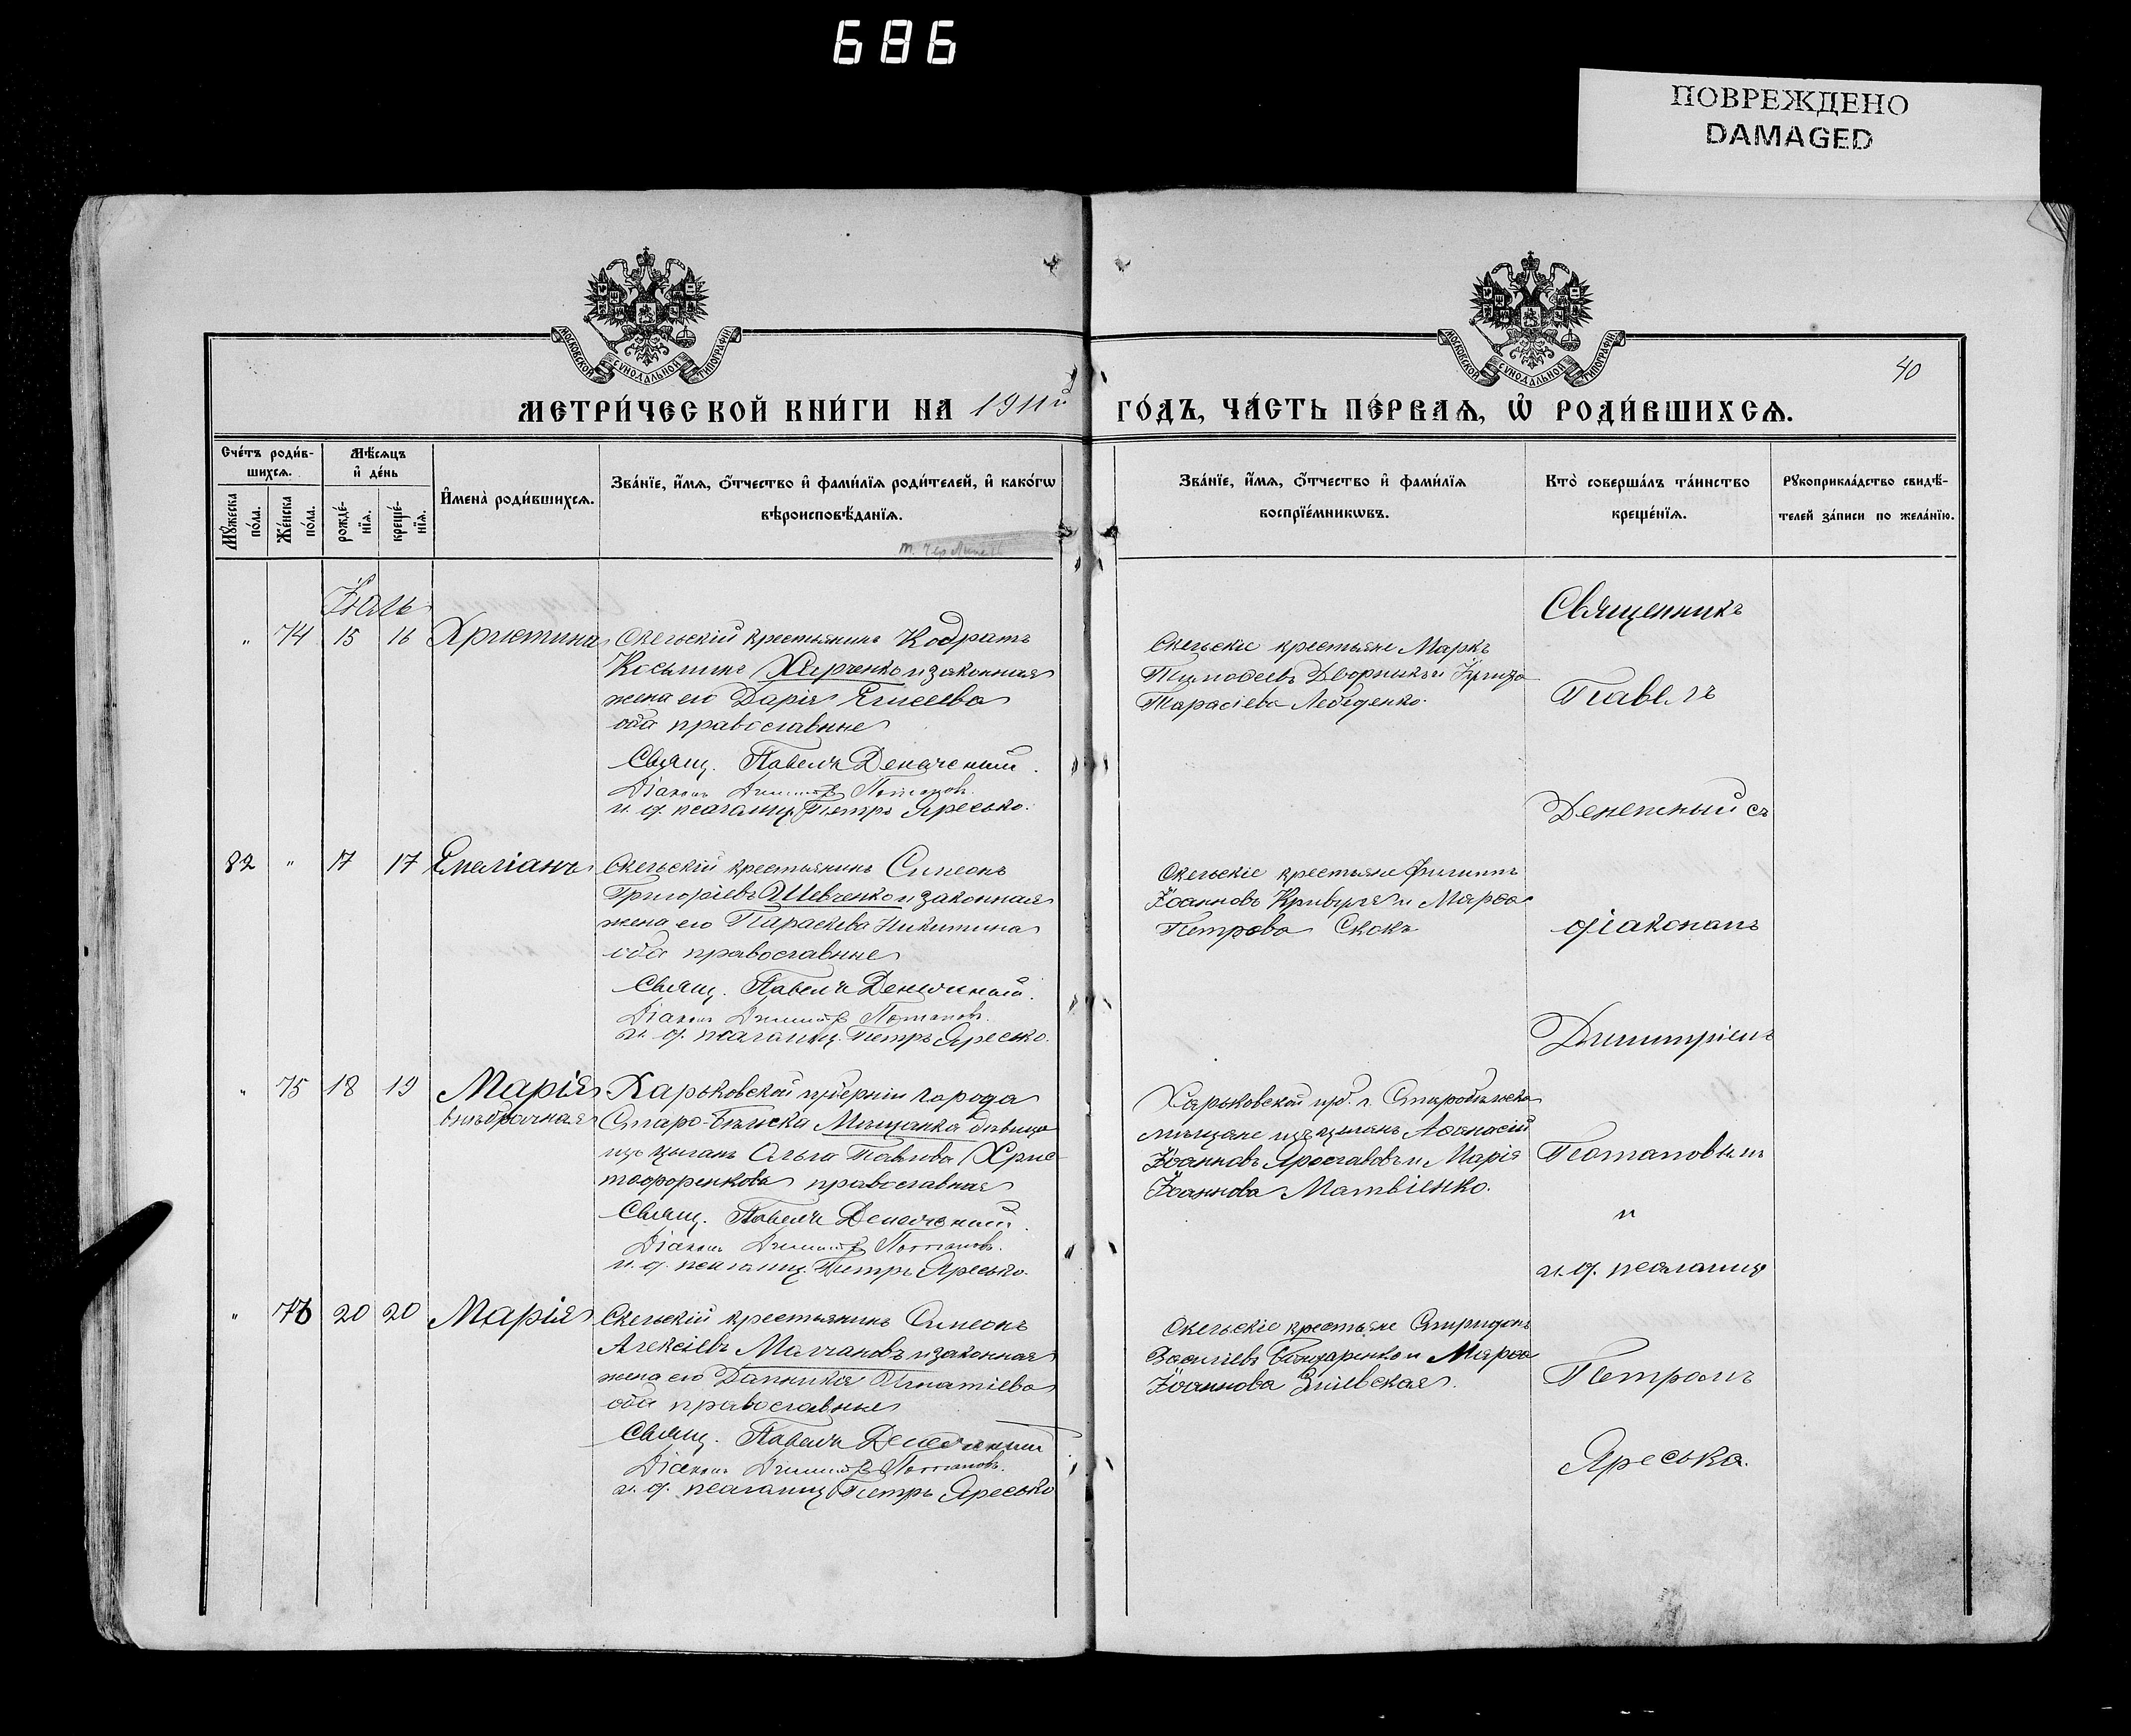 686
ПОВРЕЖДЕНО
DAMAGED
МОСКОВСКОЙ СѴНОДАЛЬНОЙ ТИПОГРАФІИ
МОСКОВСКОЙ СѴНОДАЛЬНОЙ ТИПОГРАФІИ
40
МЕТРИ́ЧЕСКОЙ КНИ́ГИ НА 1911й
ГО́ДЪ, ЧА́СТЬ ПЕ́РВАѦ, Ѡ҆ РОДИ́ВШИХСѦ.
Сче́тъ роди́в-
шихсѧ.
Мꙋ́жеска по́ла.
Же́нска по́ла.
Мѣ́сѧцъ
и҆ де́нь
рожде́-
нїѧ.
креще́-
нїѧ.
И҆мена̀ роди́вшихсѧ.
Зва́нїе, и҆́мѧ, ѻ҆́тчество и҆ фами́лїѧ роди́телей, и҆ како́гѡ
вѣроисповѣ́данїѧ.
Зва́нїе, и҆́мѧ, ѻ҆́тчество и҆ фами́лїѧ
воспрїе́мникѡвъ.
Кто̀ соверша́лъ та́инство
креще́нїѧ.
Рꙋкоприкла́дство свидѣ́-
телей за́писи по жела́нїю.
Іюль
" 74 15 16 Христина
Скельскій крестьянинъ Кодратъ
Косьминъ Харченко и законная
жена его Дарія Елисеева
оба православные
Свящ. Павелъ
Діаконъ Димитрій Потаповъ.
и. д. псаломщ. Петръ Яресько.
Скельскіе крестьяне Маркъ
Тимоѳеевъ Дворникъ и
Тарасіева Лебеденко.
82 " 17 17 Емеліанъ
Скельскій крестьянинъ Симеонъ
Григоріевъ Шевченко и законная
жена его Параскева Никитина
оба православные
Свящ. Павелъ
Діаконъ Димитрій Потаповъ.
и. д. псаломщ. Петръ Яресько.
Скельскіе крестьяне Филиппъ
Іоанновъ и Марѳа
Петрова Скокъ
" 75 18 19 Марія
внѣбрачная
Харьковской губерніи города
Старо-Бѣльска Мѣщанка дѣвица
изъ цыганъ Ольга Павлова Хрис-
тофоренкова православная
Свящ. Павелъ
Діаконъ Димитрій Потаповъ.
и. д. псаломщ. Петръ Яресько.
Харьковской губ. г. Старобѣльска
мѣщане изъ цыганъ Аѳанасій
Іоанновъ Ярославовъ и Марія
Іоаннова Матвіенко.
" 76 20 20 Марія
Скельскій крестьянинъ Симеонъ
Алексіевъ Молчановъ и законная
жена его Домникія Игнатіева
оба православные
Свящ. Павелъ
Діаконъ Димитрій Потаповъ.
и. д. псаломщ. Петръ Яресько
Скельскіе крестьяне Спиридонъ
Василіевъ Бондаренко и Марѳа
Іоаннова
Священникъ
Павелъ
съ
діакономъ
Димитріемъ
Потаповымъ
и
и. д. псаломщ
Петромъ
Яреська.